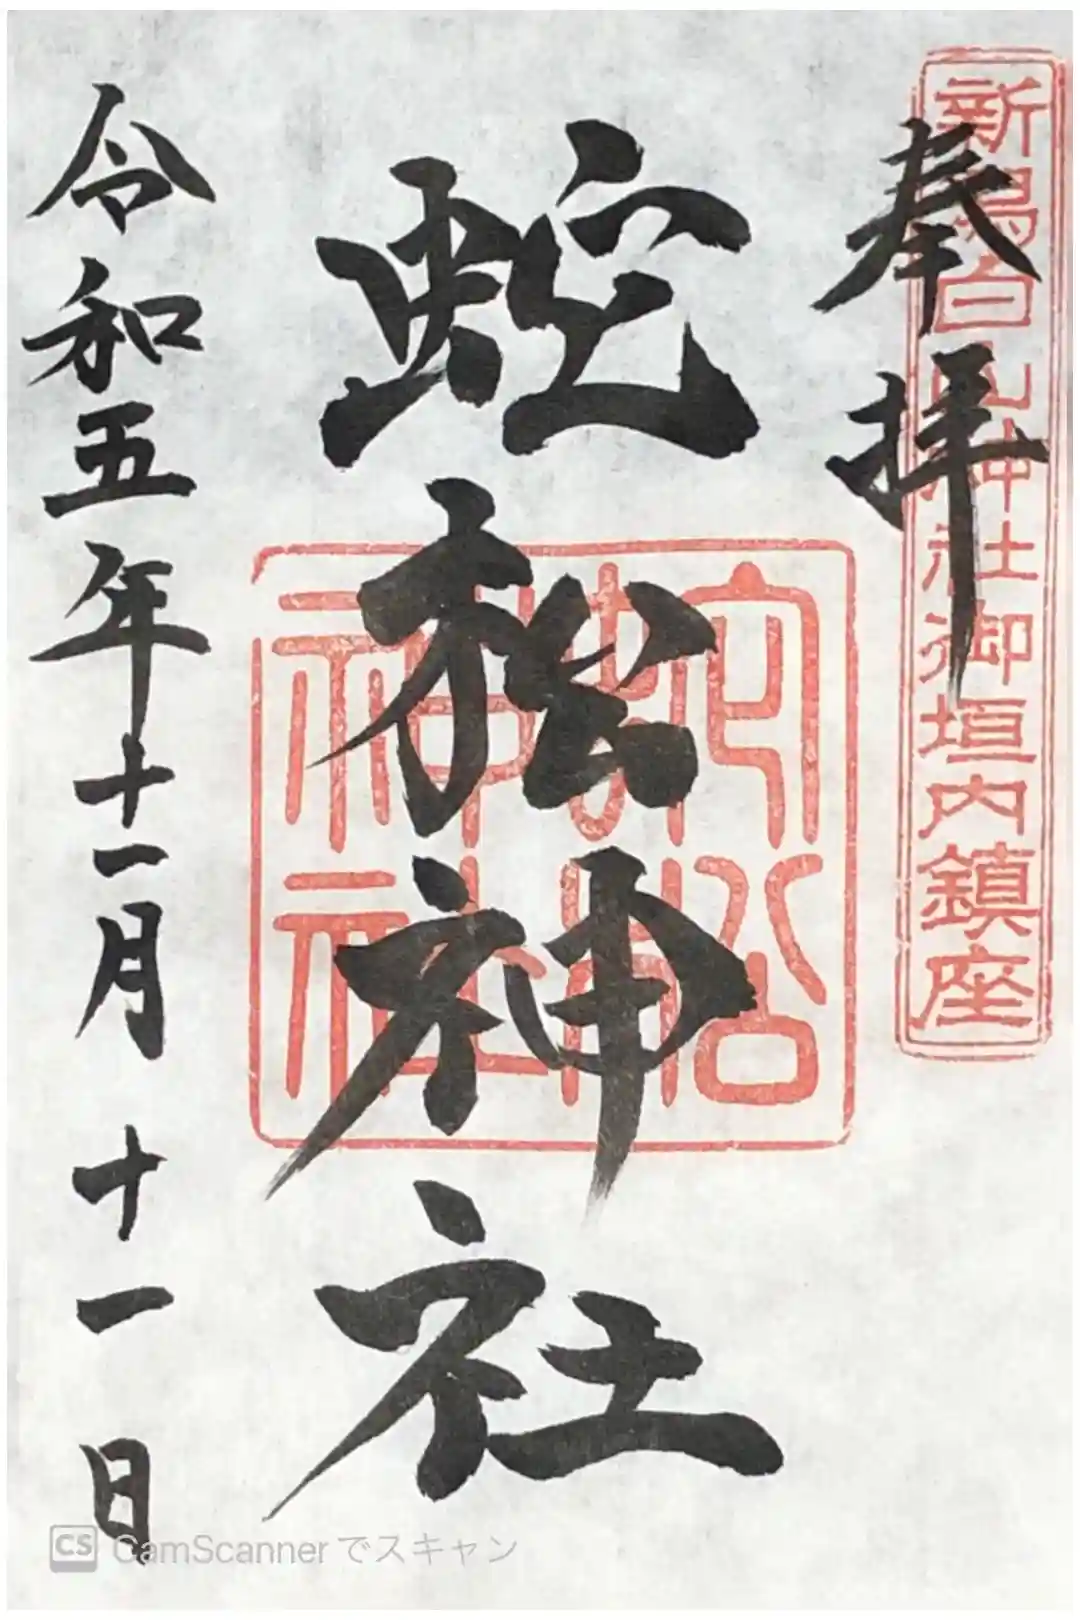 奉拝
新潟白山神社御垣内鎮座
蛇松神社
蛇松神社
令和五年十一月十一日
CS CamScanner でスキャン